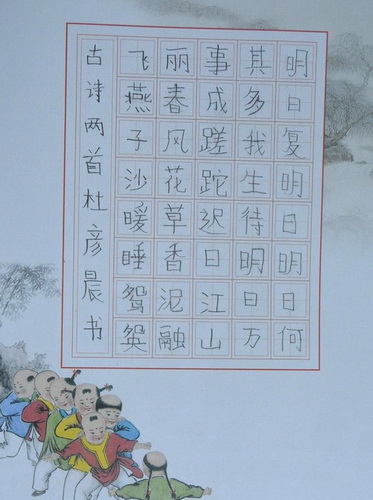 明日复明日明日何
其多我生待明日万
事成蹉跎迟日江山
丽春风花草香泥融
飞燕子沙暖睡鸳鸯
古诗两首杜彦晨书